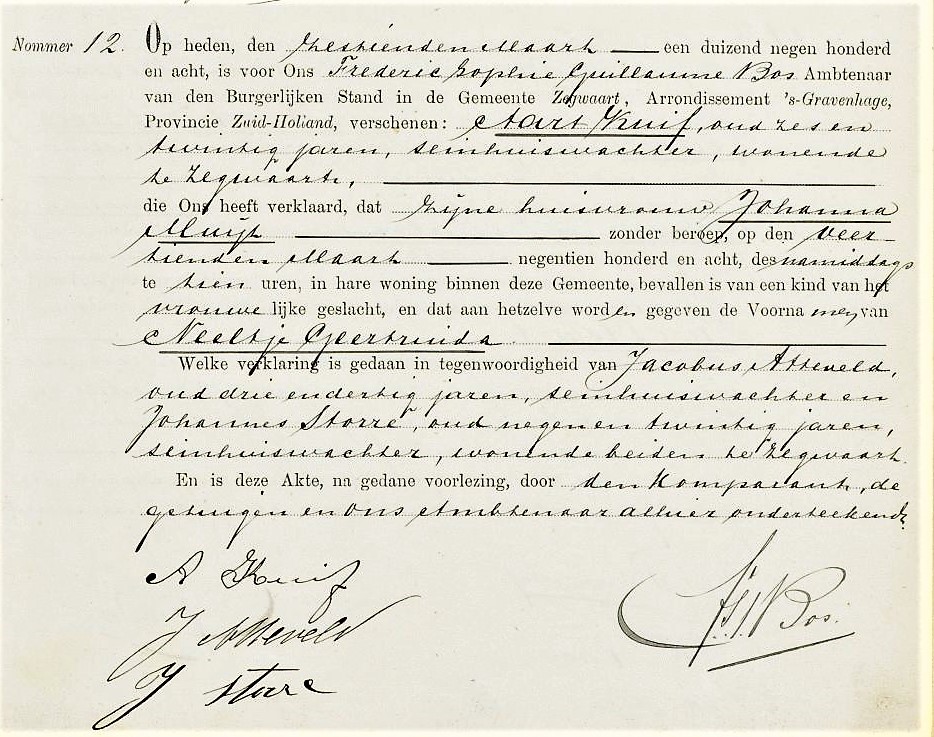 Nommer 12. Op heden, den zestienden Maart een duizend negen honderd
en acht, is voor Ons Frederic Sophie Guillaume Bos Ambtenaar
van den Burgerlijken Stand in de Gemeente Zegwaart, Arrondissement 's-Gravenhage,
Provincie Zuid-Holland, verschenen: Aart Kuif, oud zes en
twintig jaren, seinhuiswachter, wonende
te Zegwaart,
die Ons heeft verklaard, dat zijne huisvrouw Johanna
Muijt zonder beroep, op den veer-
tienden Maart negentien honderd en acht, des namiddags
te tien uren, in hare woning binnen deze Gemeente, bevallen is van een kind van het
vrouwelijke geslacht, en dat aan hetzelve worden gegeven de Voornamen van
Neeltje Geertruida.
Welke verklaring is gedaan in tegenwoordigheid van Jacobus Atteveld,
oud drie en dertig jaren, seinhuiswachter en
Johannes Storre, oud negen en twintig jaren,
seinhuiswachter, wonende beiden te Zegwaart.
En is deze Akte, na gedane voorlezing, door den Komparant, de
getuigen en ons Ambtenaar alhier onderteekend.
A Kuif
J Atteveld
J Storre
F.S. Bos.